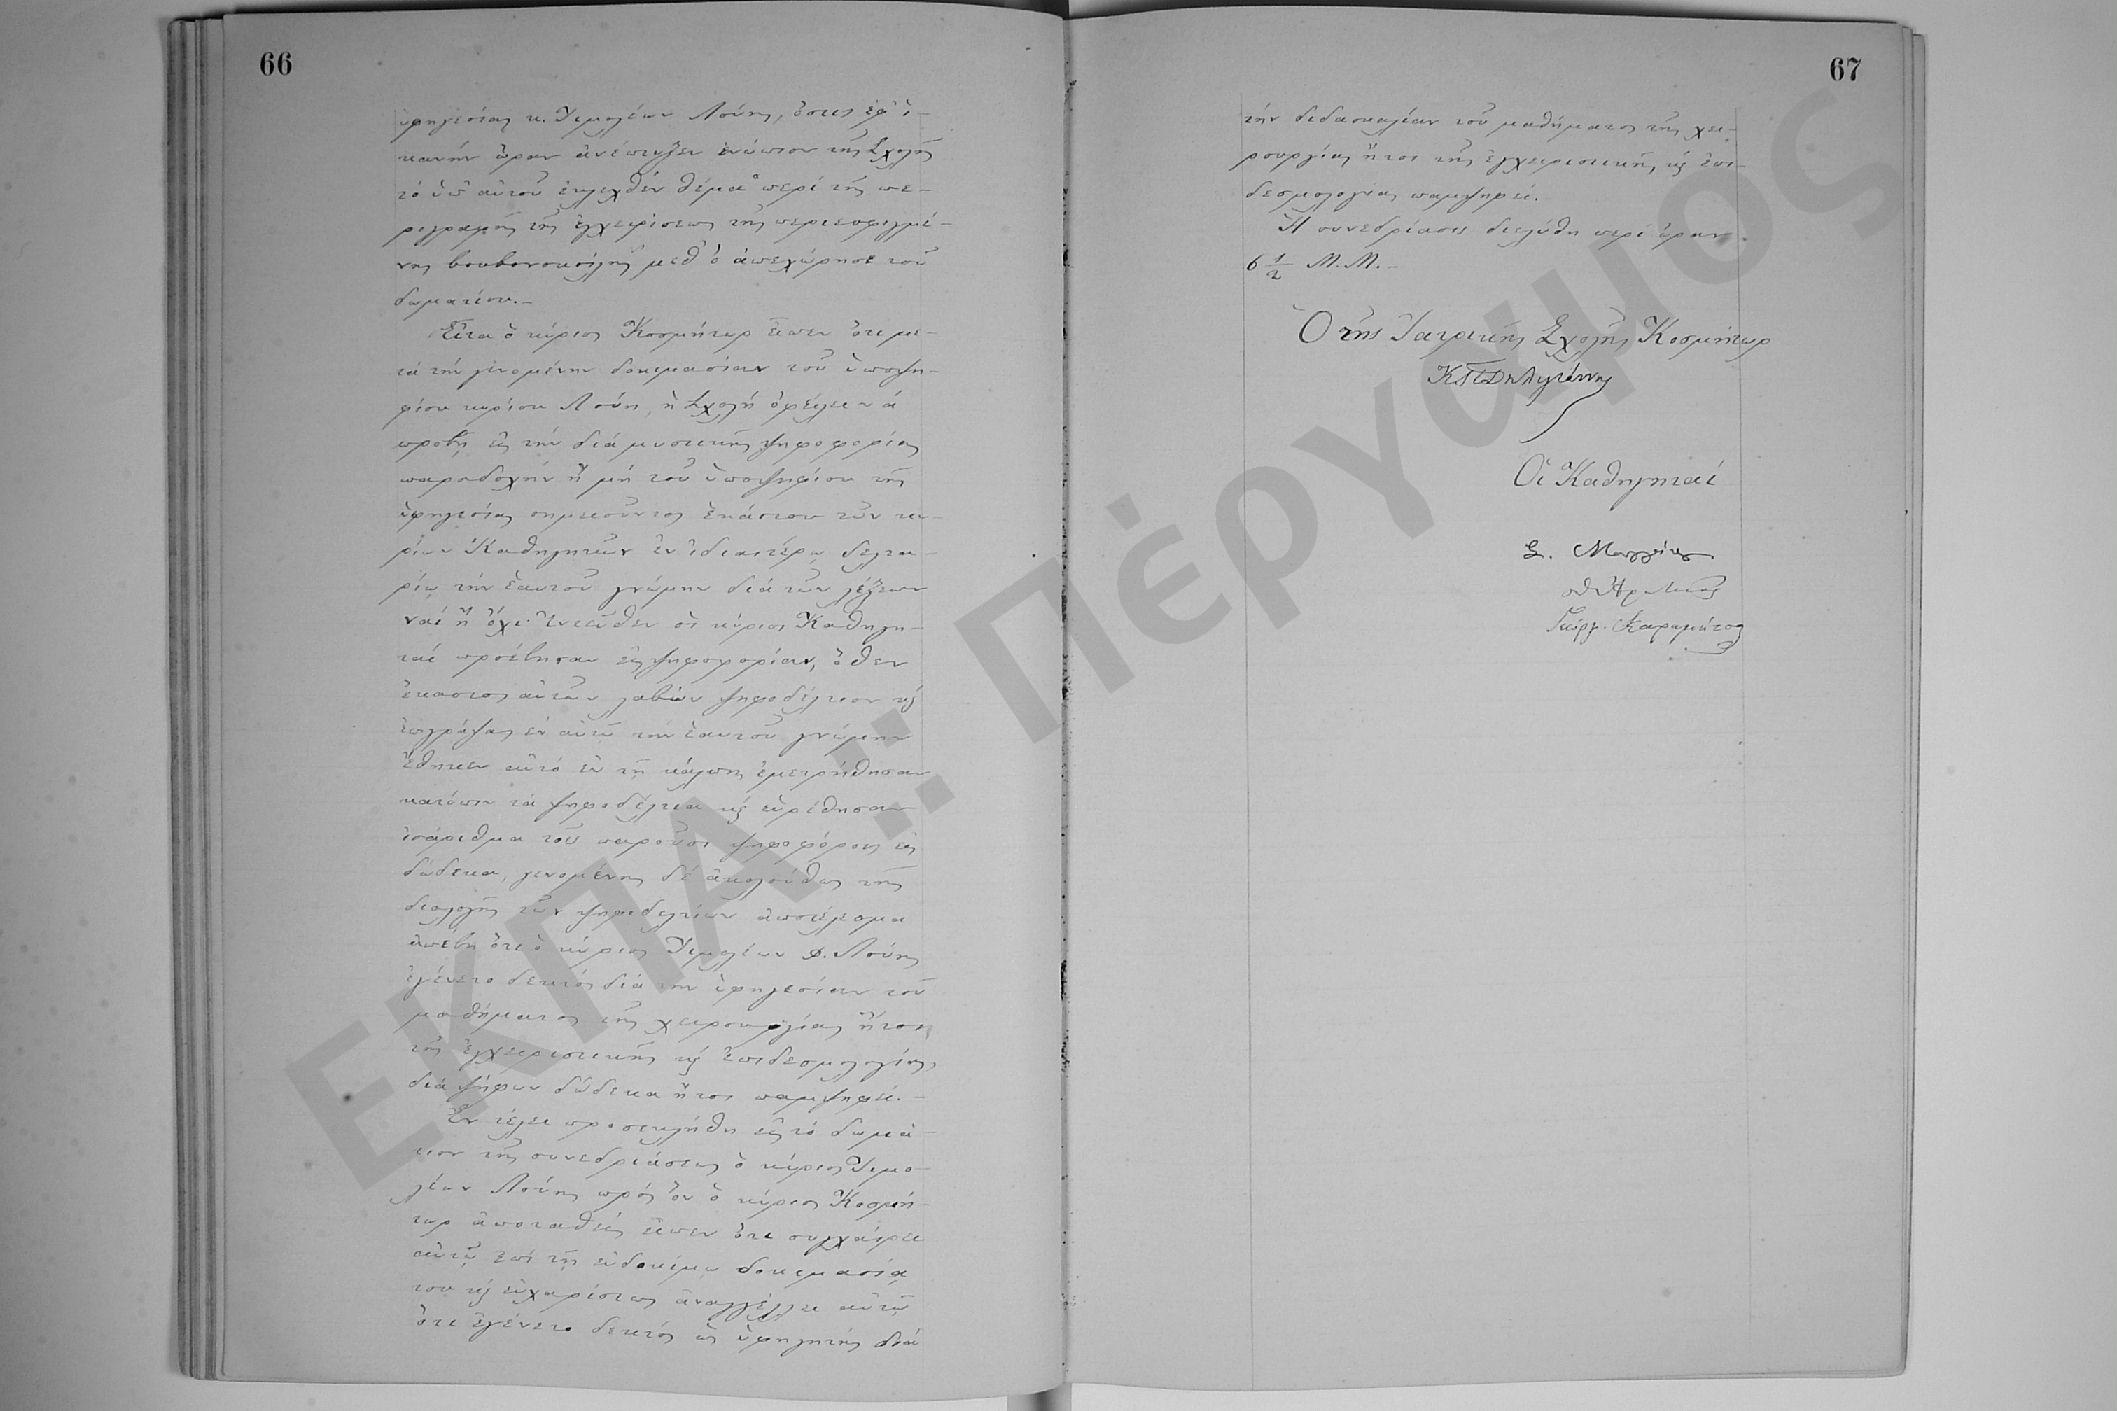 66
ὑφηγεσίας κ. Τιμολέων Λούης, ὅστις ἐφ' ἱ-
κανὴν ὥραν ἀνέπτυξεν ἐνώπιον τῆς Σχολῆς
τὸ ὑπ' αὐτοῦ ἐκλεχθὲν θέμα "περὶ τῆς πε-
ριγραφῆς τῆς ἐγχειρίσεως τῆς περιεσφιγμέ-
νης βουβωνοκήλης" μεθ' ὃ ἀπεχώρησε τοῦ
δωματίου.—
Εἶτα ὁ κύριος Κοσμήτωρ εἶπεν ὅτι με-
τὰ τὴν γενομένην δοκιμασίαν τοῦ ὑποψη-
φίου κυρίου Λούη, ἡ Σχολὴ ὀφείλει νὰ
προβῇ εἰς τὴν διὰ μυστικῆς ψηφοφορίας
παραδοχὴν ἢ μὴ τοῦ ὑποψηφίου τῆς
ὑφηγεσίας σημειοῦντος ἑκάστου τῶν κυ-
ρίων Καθηγητῶν ἐν ἰδιαιτέρῳ δελτα-
ρίῳ τὴν ἑαυτοῦ γνώμην διὰ τῶν λέξεων
ναὶ ἢ ὄχι. Ἐντεῦθεν οἱ κύριοι Καθηγη-
ταὶ προέβησαν εἰς ψηφοφορίαν, ὅθεν
ἕκαστος αὐτῶν λαβὼν ψηφοδέλτιον κὶ
ἐπιγράψας ἐν αὐτῷ τὴν ἑαυτοῦ γνώμην
ἔθηκεν αὐτὸ ἐν τῇ κάλπῃ, ἐμετρήθησαν
κατόπιν τὰ ψηφοδέλτια κὶ εὑρέθησαν
ἰσάριθμα τοῖς παροῦσι ψηφοφόροις εἰς
δώδεκα, γενομένης δὲ ἀκολούθως τῆς
διαλογῆς τῶν ψηφοδελτίων ἀποτέλεσμα
ἀπέβη ὅτι ὁ κύριος Τιμολέων Φ. Λούης
ἐγένετο δεκτὸς διὰ τὴν ὑφηγεσίαν τοῦ
μαθήματος τῆς χειρουργίας ἤτοι
τῆς ἐγχειριστικῆς κὶ ἐπιδεσμολογίας
διὰ ψήφων δώδεκα ἤτοι παμψηφεί.—
Ἐν τέλει προσεκλήθη εἰς τὸ δωμά-
τιον τῆς συνεδριάσεως ὁ κύριος Τιμο-
λέων Λούης πρὸς ὃν ὁ κύριος Κοσμή-
τωρ ἀποταθεὶς εἶπεν ὅτι συγχαίρει
αὐτῷ ἐπὶ τῇ εὐδοκίμῳ δοκιμασίᾳ
του κὶ εὐχαρίστως ἀναγγέλλει αὐτῷ
ὅτι ἐγένετο δεκτὸς ὡς ὑφηγητὴς διὰ
67
τὴν διδασκαλίαν τοῦ μαθήματος τῆς χει-
ρουργίας ἤτοι τῆς ἐγχειριστικῆς κὶ ἐπι-
δεσμολογίας παμψηφεί.
Ἡ συνεδρίασις διελύθη περὶ ὥραν
6 1/2 Μ.Μ.—
Ὁ τῆς Ἰατρικῆς Σχολῆς Κοσμήτωρ
Κ Δηλιγιάννης
Οἱ Καθηγηταί
Σ. Μαγγίνας
Γεώργ. Καραμήτσας
ΕΚΠΑ :: Πέργαμος